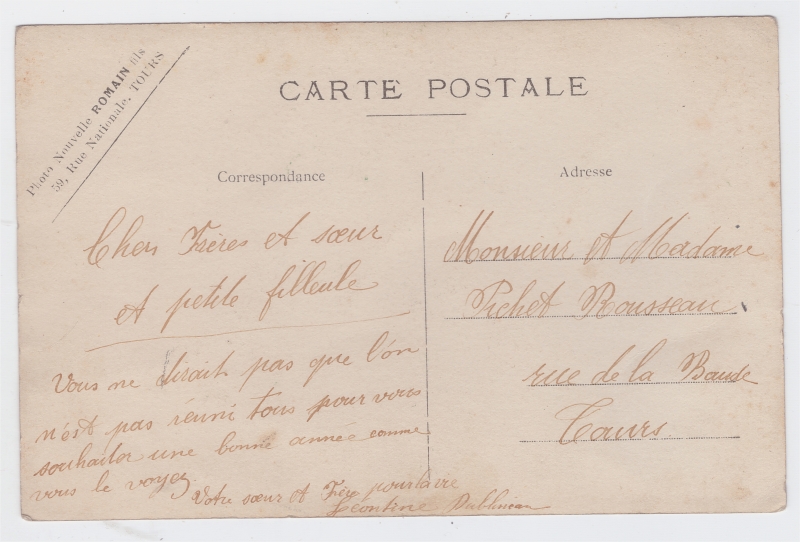 Photo Nouvelle ROMAIN fils
59, Rue Nationale, TOURS
CARTE POSTALE
Correspondance
Adresse
Chers Frères et sœur
et petite filleule
Vous ne dirait pas que l'on
n'est pas réuni tous pour vous
souhaiter une bonne année comme
vous le voyez
Votre sœur et Frère pour la vie
Léontine
Monsieur et Madame
Pichet Rousseau
rue de la
Tours